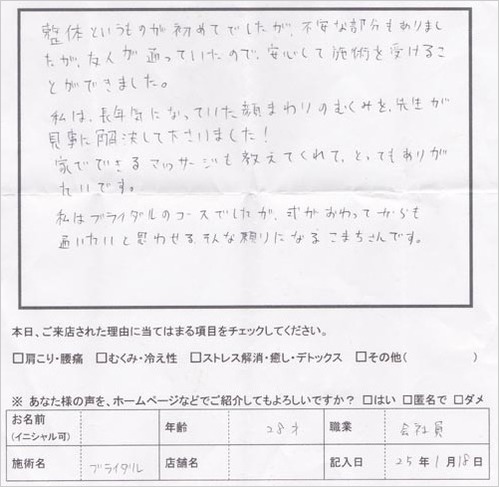 整体というものが初めてでしたが、不安な部分もありまし
たが、友人が通っていたので、安心して施術を受けるこ
とができました。
私は、長年気になっていた顔まわりのむくみを、先生が
見事に解決して下さいました!
家でできるマッサージも教えてくれて、とってもありが
たいです。
私はブライダルのコースでしたが、式がおわってからも
通いたいと思わせる、そんな頼りになるこまちさんです。
本日、ご来店された理由に当てはまる項目をチェックしてください。
□肩こり・腰痛 □むくみ・冷え性 □ストレス解消・癒し・デトックス □その他( )
※ あなた様の声を、ホームページなどでご紹介してもよろしいですか? □はい □匿名で □ダメ
お名前 年齢 28才 職業 会社員
(イニシャル可)
施術名 ブライダル 店舗名 記入日 25年1月18日